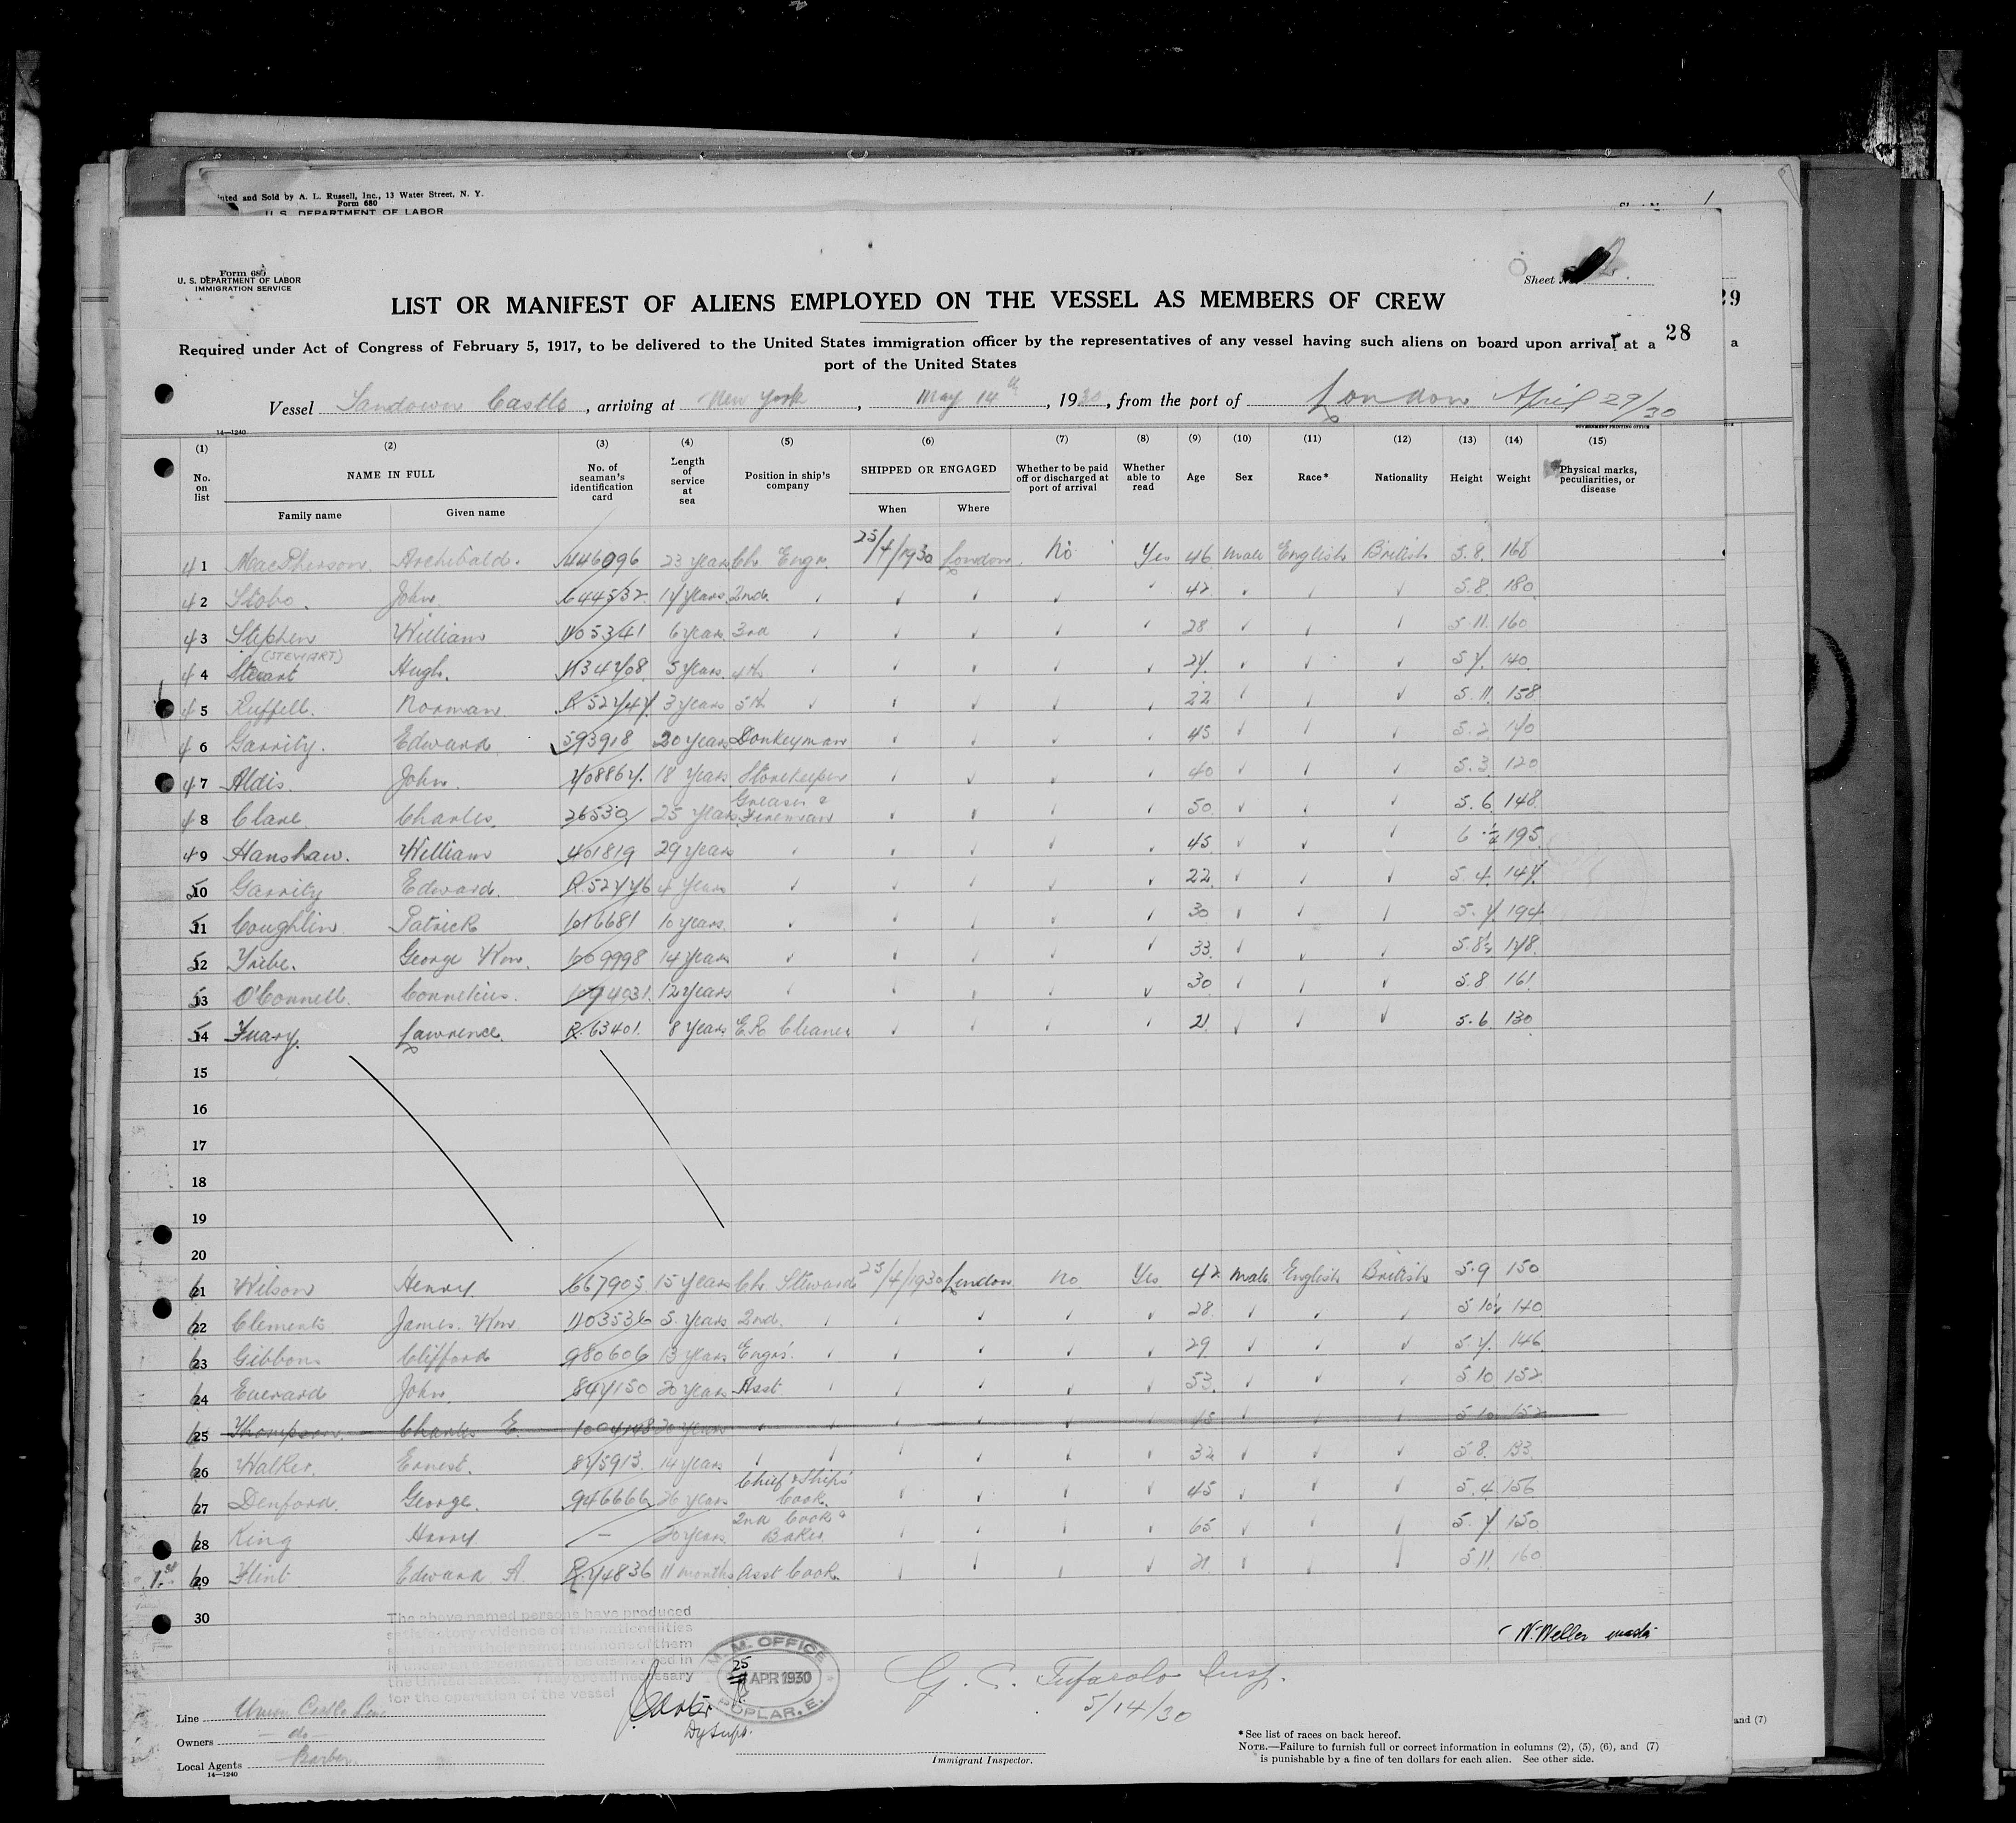 nted and Sold by A. L. Russell, Inc., 13 Water Street, N. Y.
Form 680
U. S. DEPARTMENT OF LABOR
1
29
a
Form 680
U. S. DEPARTMENT OF LABOR
IMMIGRATION SERVICE
Sheet No.
LIST OR MANIFEST OF ALIENS EMPLOYED ON THE VESSEL AS MEMBERS OF CREW
28
Required under Act of Congress of February 5, 1917, to be delivered to the United States immigration officer by the representatives of any vessel having such aliens on board upon arrival at a
port of the United States
Vessel Sandown Castle, arriving at New York, May 14th, 1930, from the port of London April 29/30
14—1240
GOVERNMENT PRINTING OFFICE
(1) (2) (3) (4) (5) (6) (7) (8) (9) (10) (11) (12) (13) (14) (15)
No. on list NAME IN FULL No. of seaman's identification card Length of service at sea Position in ship's company SHIPPED OR ENGAGED Whether to be paid off or discharged at port of arrival Whether able to read Age Sex Race* Nationality Height Weight Physical marks, peculiarities, or disease
Family name Given name When Where
41 MacPherson. Archibald. 446096 23 years Ch Engr. 25/4/1930 London. No Yes 46 Male English British 5.8. 168
42 Stobo. John. 644532 17 years 2nd. ✓ ✓ ✓ ✓ ✓ 42 ✓ ✓ ✓ 5.8. 180
43 Stephen William 1105341 6 years 3rd ✓ ✓ ✓ ✓ ✓ 28 ✓ ✓ ✓ 5.11. 160
(STEWART)
44 Steuart Hugh. 1134708 5 years. 4th ✓ ✓ ✓ ✓ ✓ 27. ✓ ✓ ✓ 5 7. 140
45 Ruffell. Norman. R.52747 3 years 5th ✓ ✓ ✓ ✓ ✓ 22 ✓ ✓ ✓ 5.11. 158
46 Garrity. Edward 593918 20 years Donkeyman ✓ ✓ ✓ ✓ 45 ✓ ✓ ✓ 5.2 140
47 Aldis. John. 708867. 18 years Storekeeper ✓ ✓ ✓ ✓ 40 ✓ ✓ ✓ 5.3. 120
48 Clare Charles 26530 25 years Greaser & Fireman ✓ ✓ ✓ ✓ 50 ✓ ✓ ✓ 5.6. 148
49 Hanshaw. William 401819 29 years ✓ ✓ ✓ ✓ ✓ 45 ✓ ✓ ✓ 6 ½ 195
50 Garrity Edward. R.52776 4 years ✓ ✓ ✓ ✓ ✓ 22. ✓ ✓ ✓ 5.4. 147.
51 Coughlin Patrick 1016681 10 years. ✓ ✓ ✓ ✓ ✓ 30 ✓ ✓ ✓ 5.7. 194
52 George Wm. 14 years ✓ ✓ ✓ ✓ ✓ 33. ✓ ✓ ✓ 5.8½ 178.
53 O'Connell. Cornelius. 12 years ✓ ✓ ✓ ✓ ✓ 30 ✓ ✓ ✓ 5.8 161
54 Lawrence. R.63401. 8 years E.R Cleaner ✓ ✓ ✓ ✓ 21. ✓ ✓ ✓ 5.6 130
15
16
17
18
19
20
61 Wilson Henry 667905 15 years Ch Steward 25/4/1930 London. No Yes. 42 Male English British 5.9 150
62 Clements James. Wm 1103536 5. years 2nd. ✓ ✓ ✓ ✓ ✓ 28. ✓ ✓ ✓ 5 10½ 140
63 Gibbons Clifford 980606 13 years Engrs'. ✓ ✓ ✓ ✓ ✓ 29 ✓ ✓ ✓ 5.7. 146
64 Everard John. 847150 20 years Asst ✓ ✓ ✓ ✓ ✓ 53. ✓ ✓ ✓ 5 10 152
65 Thompson. Charles E. 1004148 20 years ✓ ✓ ✓ ✓ ✓ ✓ 45 ✓ ✓ ✓ 5 10 152
66 Walker. Ernest. 875913. 14 years ✓ ✓ ✓ ✓ ✓ ✓ 32 ✓ ✓ ✓ 5 8. 133
67 Denford. George. 946666 26 years Chief & Ships' Cook. ✓ ✓ ✓ ✓ 45 ✓ ✓ ✓ 5.4 156
68 King Harry — 20 years. 2nd Cook & Baker ✓ ✓ ✓ ✓ 65 ✓ ✓ ✓ 5.7 150
1st 69 Flint Edward A. R.74836 11 months Asst Cook. ✓ ✓ ✓ ✓ 21 ✓ ✓ ✓ 5 11. 160
30
The above named persons have produced
satisfactory evidence of their nationalities
the United States
for the operation of the vessel
N. Weller master
M. M. OFFICE
25 APR 1930
POPLAR, E.
Dy Supt.
G. C. Tufarolo Insp.
5/14/30
Line Union Castle Line
Owners — do —
Local Agents Barber
14—1240
Immigrant Inspector.
*See list of races on back hereof.
NOTE.—Failure to furnish full or correct information in columns (2), (5), (6), and (7)
is punishable by a fine of ten dollars for each alien. See other side.
and (7)